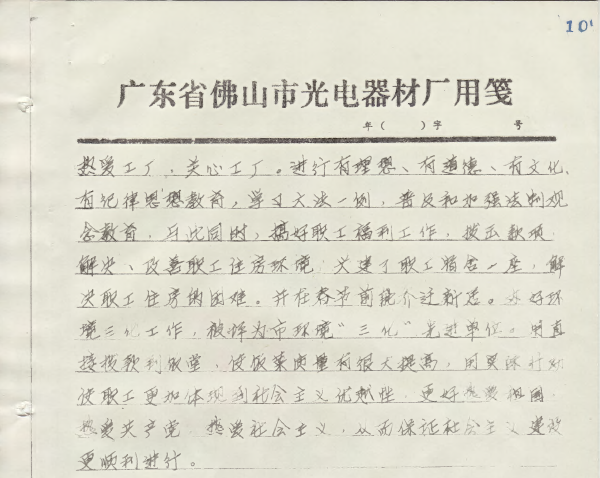 101
广东省佛山市光电器材厂用笺
年( )字 号
热爱工厂,关心工厂。进行有理想、有道德、有文化、
有纪律思想教育,学习大法一例,普及和加强法制观
念教育,与此同时,搞好职工福利工作,拨出款项
解决、改善职工住房环境,兴建了职工宿舍一座,解
决职工住房的困难。并在春节前经介迁新居。好环
境三化工作,被评为市环境“三化”先进单位。
接拨款到饭堂,使饭菜质量有很大提高,用实际行动
使职工更加体现到社会主义优越性,更好热爱祖国,
热爱共产党,热爱社会主义,从而保证社会主义建设
更顺利进行。